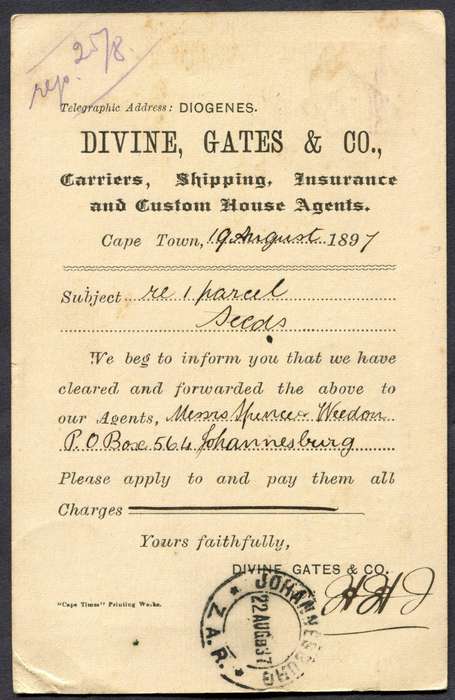 rep. 25/8.
Telegraphic Address: DIOGENES.
DIVINE, GATES & CO.,
Carriers, Shipping, Insurance
and Custom House Agents.
Cape Town, 19 August 1897
Subject re 1 parcel
Seeds
We beg to inform you that we have
cleared and forwarded the above to
our Agents, Messrs Spence & Weedon
P.O Box 564 Johannesburg
Please apply to and pay them all
Charges
Yours faithfully,
DIVINE, GATES & CO.
"Cape Times" Printing Works.
JOHANNESBURG
Z.A.R.